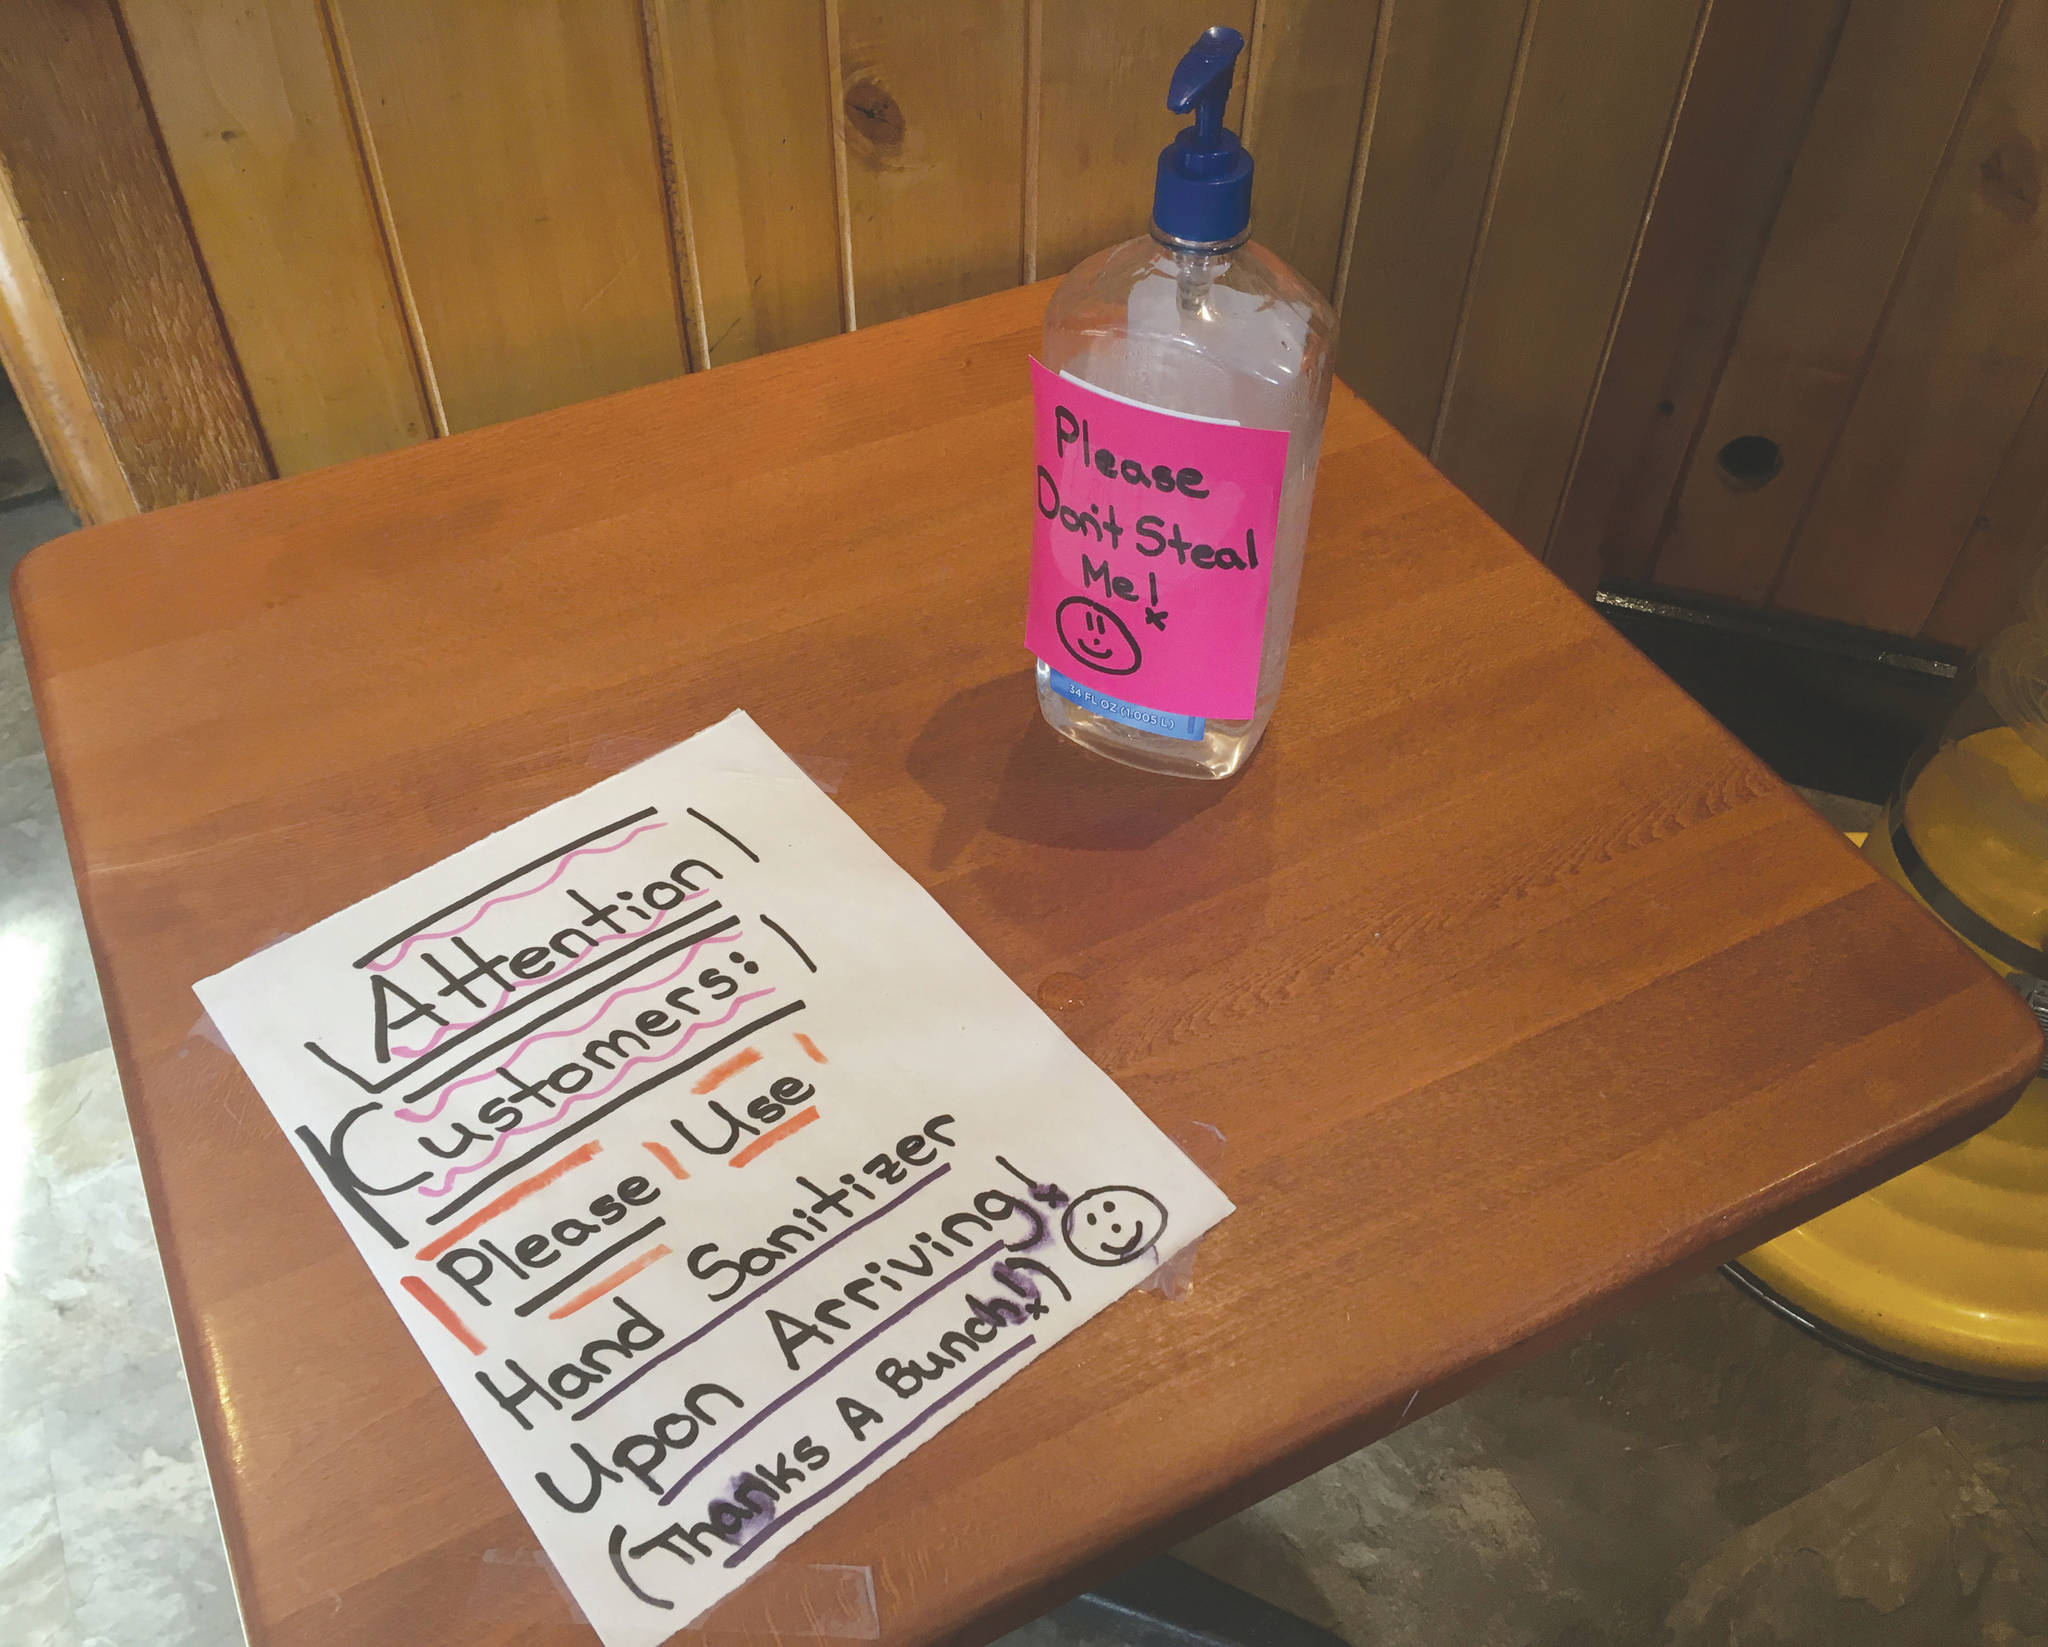 Please
Don't Steal
Me!
34 FL OZ (1.005 L)
Attention
Customers:
Please Use
Hand Sanitizer
Upon Arriving!
(Thanks A Bunch!)